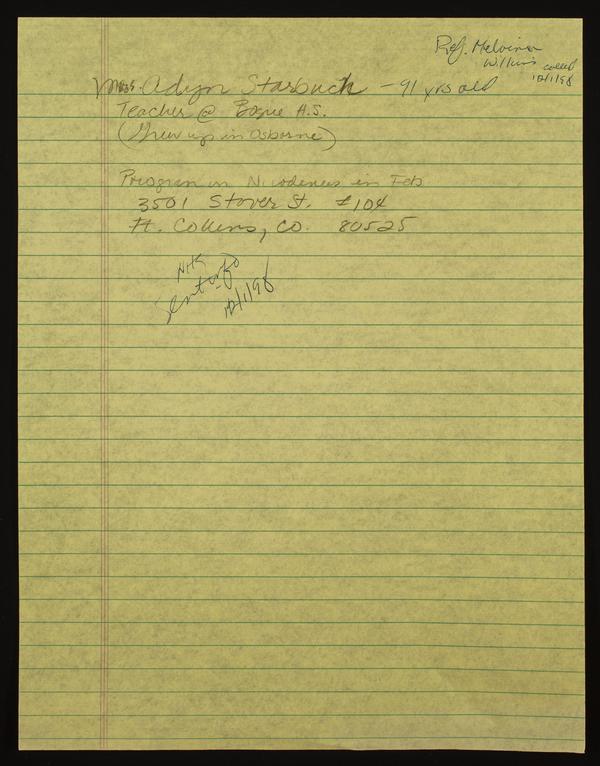 Ref. Melvina
Willims called
12/1/98
Mrs. Adyn Starbuck - 91 yrs old
Teacher @ Bogue H.S.
(Grew up in Osborne)
Program on Nicodemus in Feb
3501 Stover St. #104
Ft. Collins, CO. 80525
sent info
12/1/98